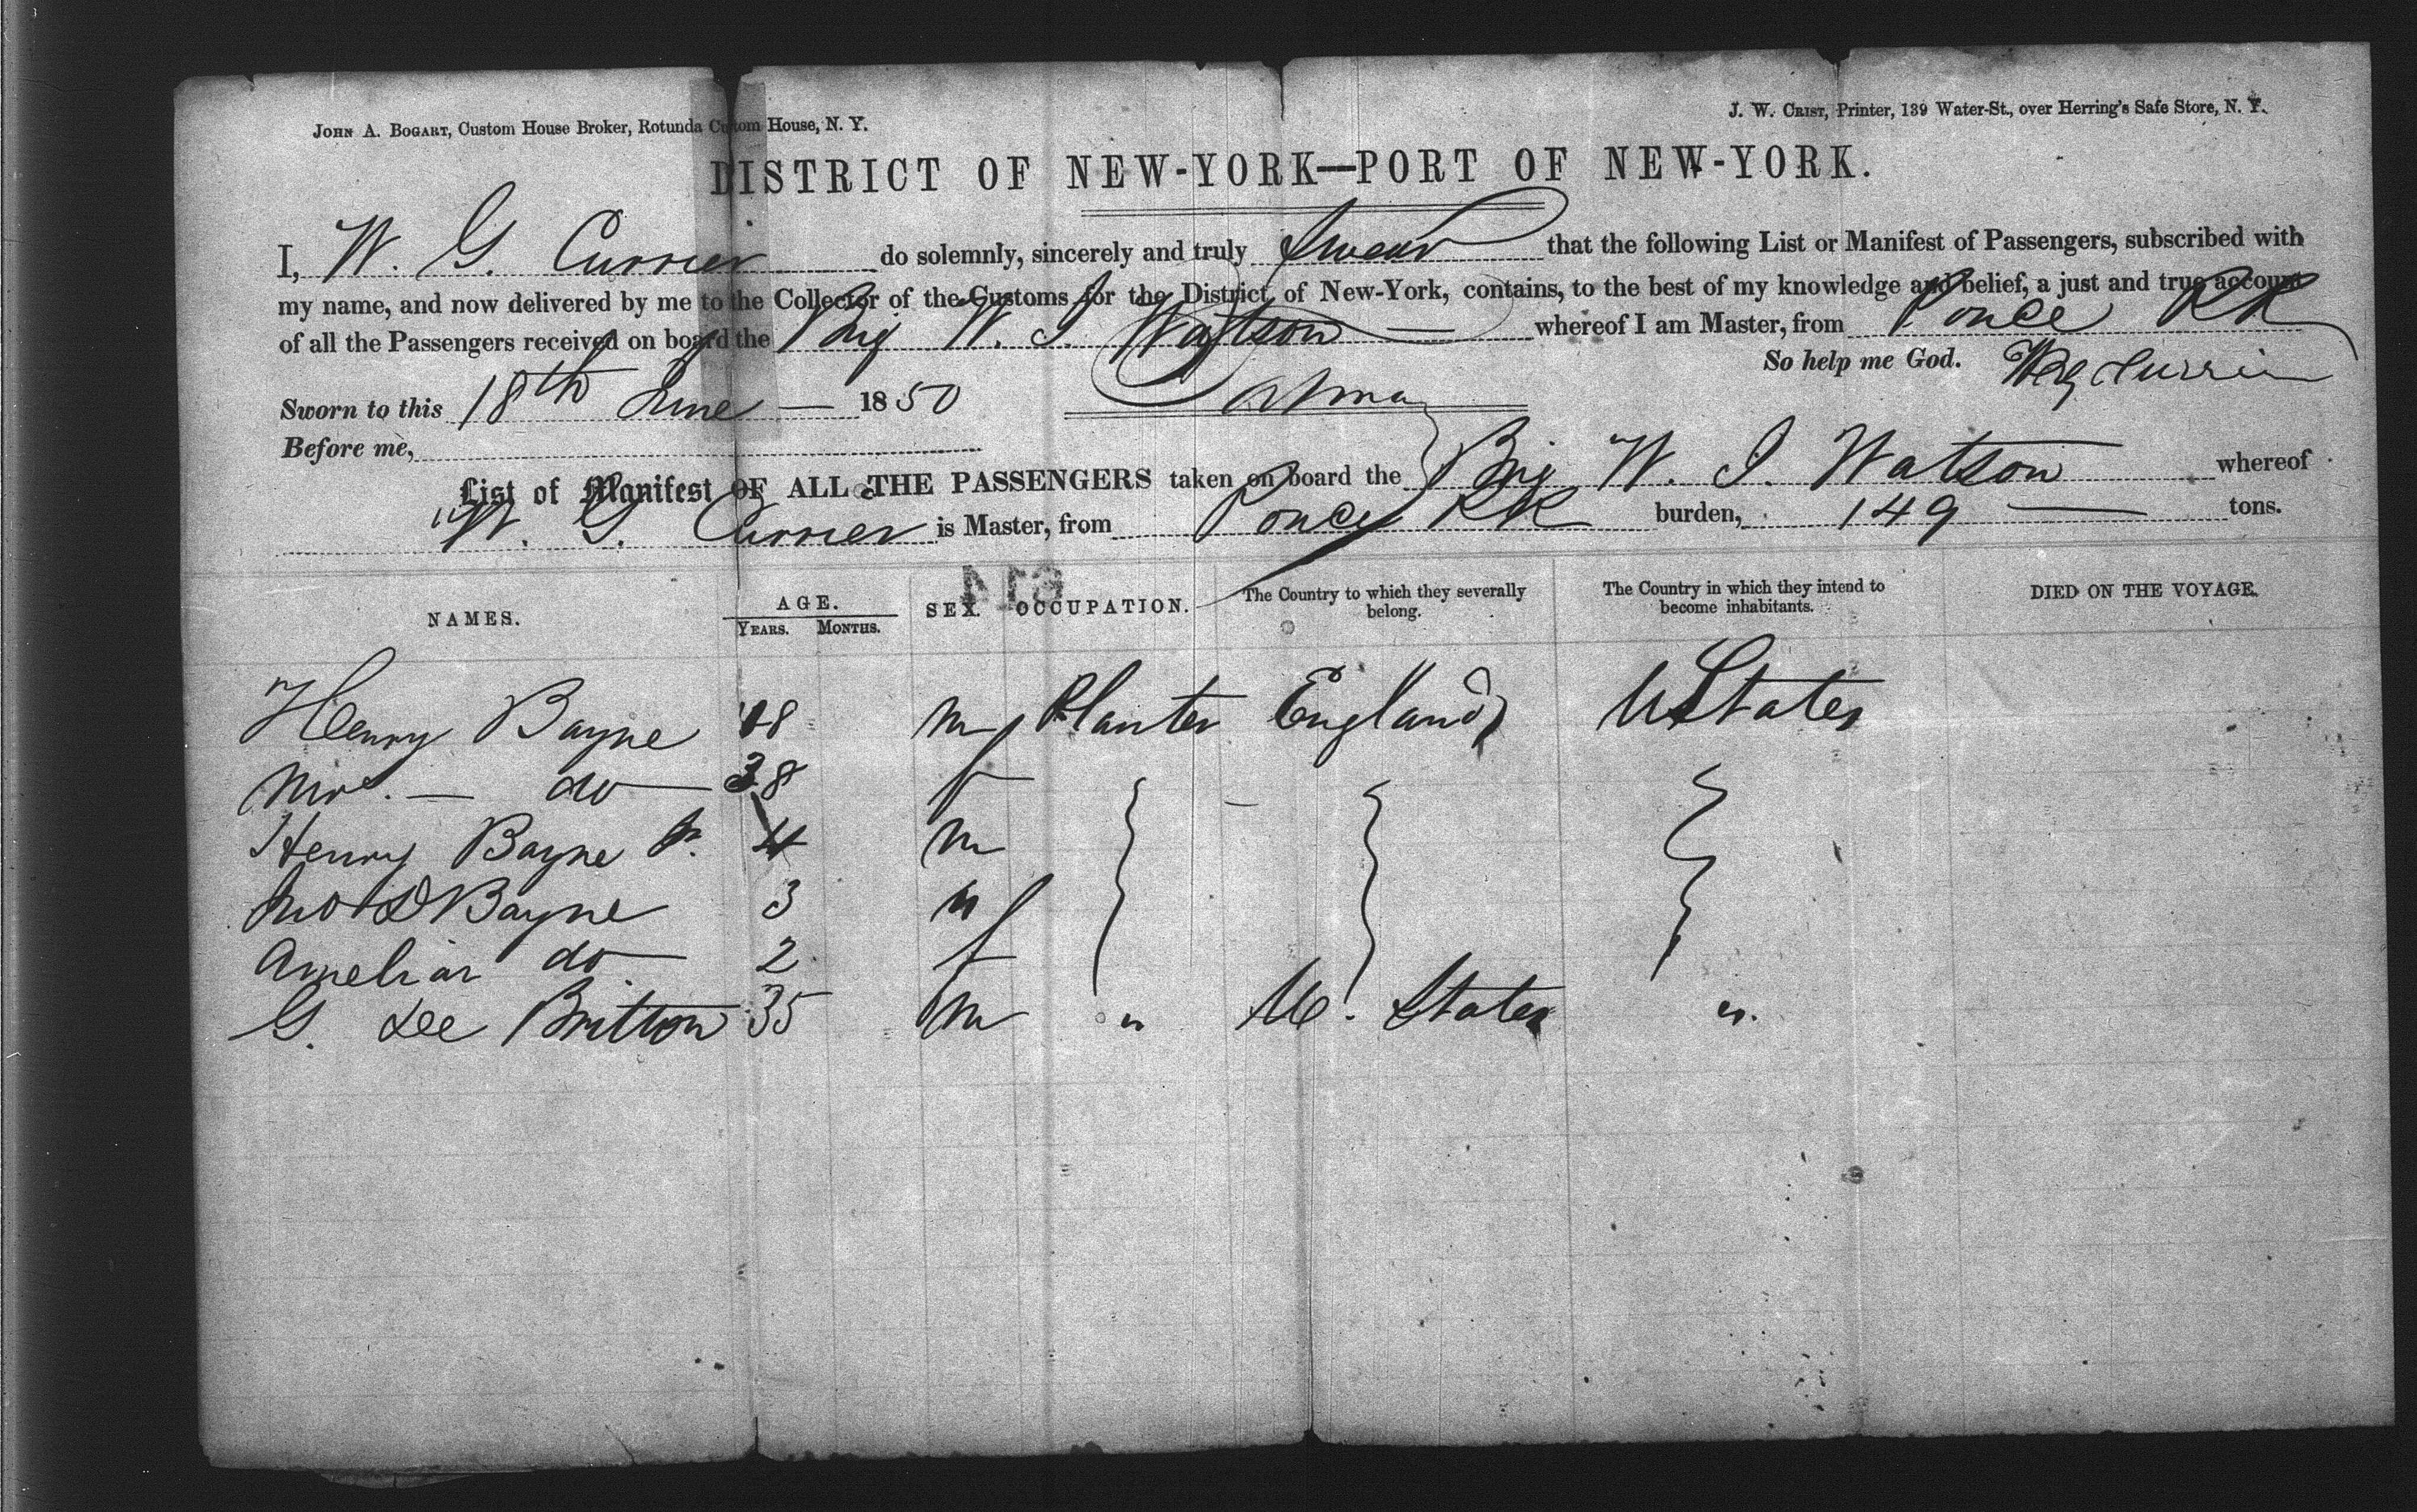 JOHN A. BOGART, Custom House Broker, Rotunda Custom House, N. Y.
J. W. CRIST, Printer, 139 Water-St., over Herring's Safe Store, N. Y.
DISTRICT OF NEW-YORK—PORT OF NEW-YORK.
I, W. G. Currier do solemnly, sincerely and truly Swear that the following List or Manifest of Passengers, subscribed with
my name, and now delivered by me to the Collector of the Customs for the District of New-York, contains, to the best of my knowledge and belief, a just and true account
of all the Passengers received on board the Brig W. I. Watson — whereof I am Master, from Ponce P R
So help me God. Wm G Currier
Sworn to this 18th June — 1850
Before me,
List of Manifest OF ALL THE PASSENGERS taken on board the Brig W. I. Watson whereof
W. G. Currier is Master, from Ponce P R burden, 149 — tons.
NAMES. AGE. SEX. OCCUPATION. The Country to which they severally belong. The Country in which they intend to become inhabitants. DIED ON THE VOYAGE.
YEARS. MONTHS.
Henry Bayne 48 m Planter England U States
Mrs. — do 38 f
Henry Bayne Jr. 4 m
Jno D Bayne 3 "
Ameliar do 2 f
G. Lee Britton 35 m " U. States "